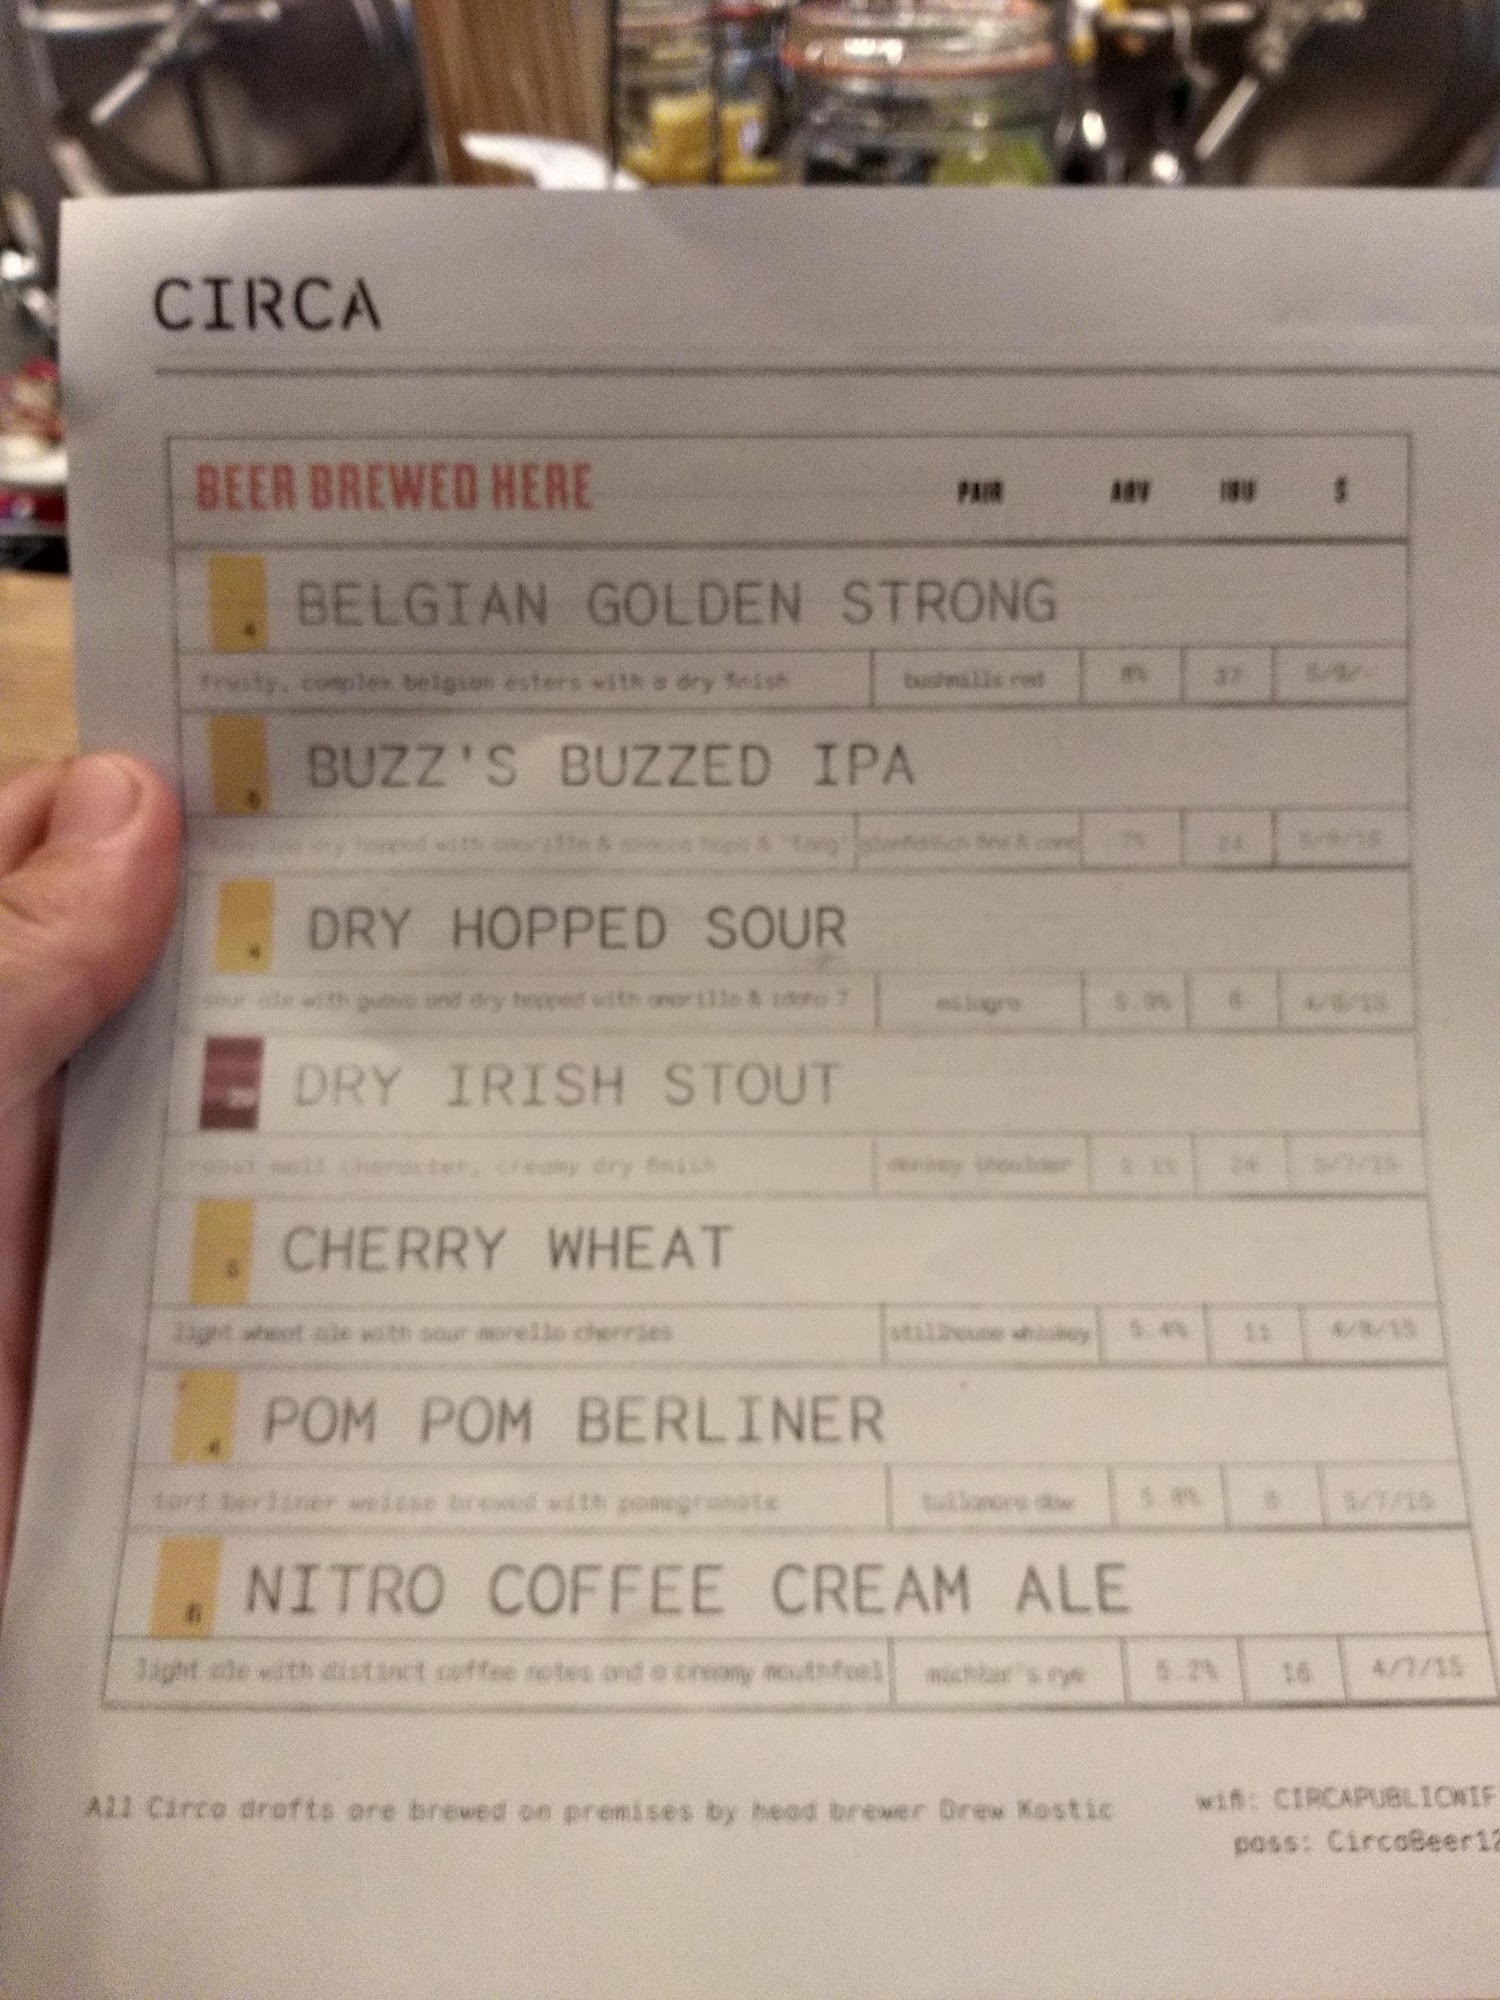 CIRCA
BEER BREWED HERE PAIR ABV IBU $
4 BELGIAN GOLDEN STRONG
fruity, complex belgian esters with a dry finish bushmills red 8% 37 5/9/-
5 BUZZ'S BUZZED IPA
dry hopped with amarillo & hops & "tang" glenfiddich fire & cane 7% 5/9/15
4 DRY HOPPED SOUR
sour ale with guava and dry hopped with amarillo & idaho 7 milagro 6 4/8/15
DRY IRISH STOUT
roast malt character, creamy dry finish monkey shoulder 24 5/7/15
5 CHERRY WHEAT
light wheat ale with sour morello cherries stillhouse whiskey 5.4% 11 4/8/15
4 POM POM BERLINER
tart berliner weisse brewed with pomegranate tullamore dew 5.8% 8 5/7/15
6 NITRO COFFEE CREAM ALE
light ale with distinct coffee notes and a creamy mouthfeel michter's rye 5.2% 16 4/7/15
All Circa drafts are brewed on premises by head brewer Drew Kostic wifi: CIRCAPUBLICWIF
pass: CircaBeer12